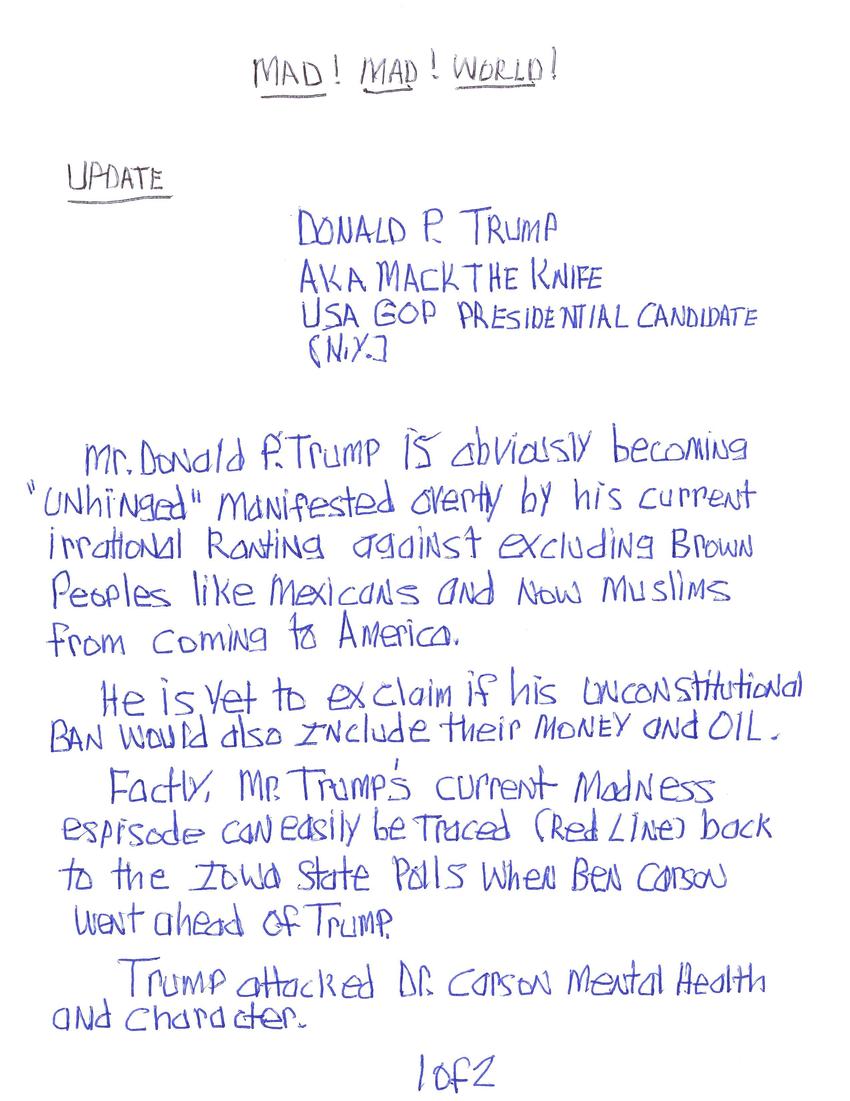 MAD! MAD! WORLD!
UPDATE
DONALD P. TRUMP
AKA MACK THE KNIFE
USA GOP PRESIDENTIAL CANDIDATE
[N.Y.]
Mr. Donald P. Trump is obviously becoming
"UNhiNged" manifested overtly by his current
irrational Ranting against excluding Brown
Peoples like Mexicans and Now Muslims
from coming to America.
He is yet to exclaim if his UNCONStitutional
BAN Would also INclude their MONEY and OIL.
Factly, Mr. Trump's current Madness
esprisode can easily be Traced (Red Line) back
to the Iowa State Polls When Ben Carson
went ahead of Trump.
Trump attacked Dr. Carson Mental Health
and character.
1 of 2